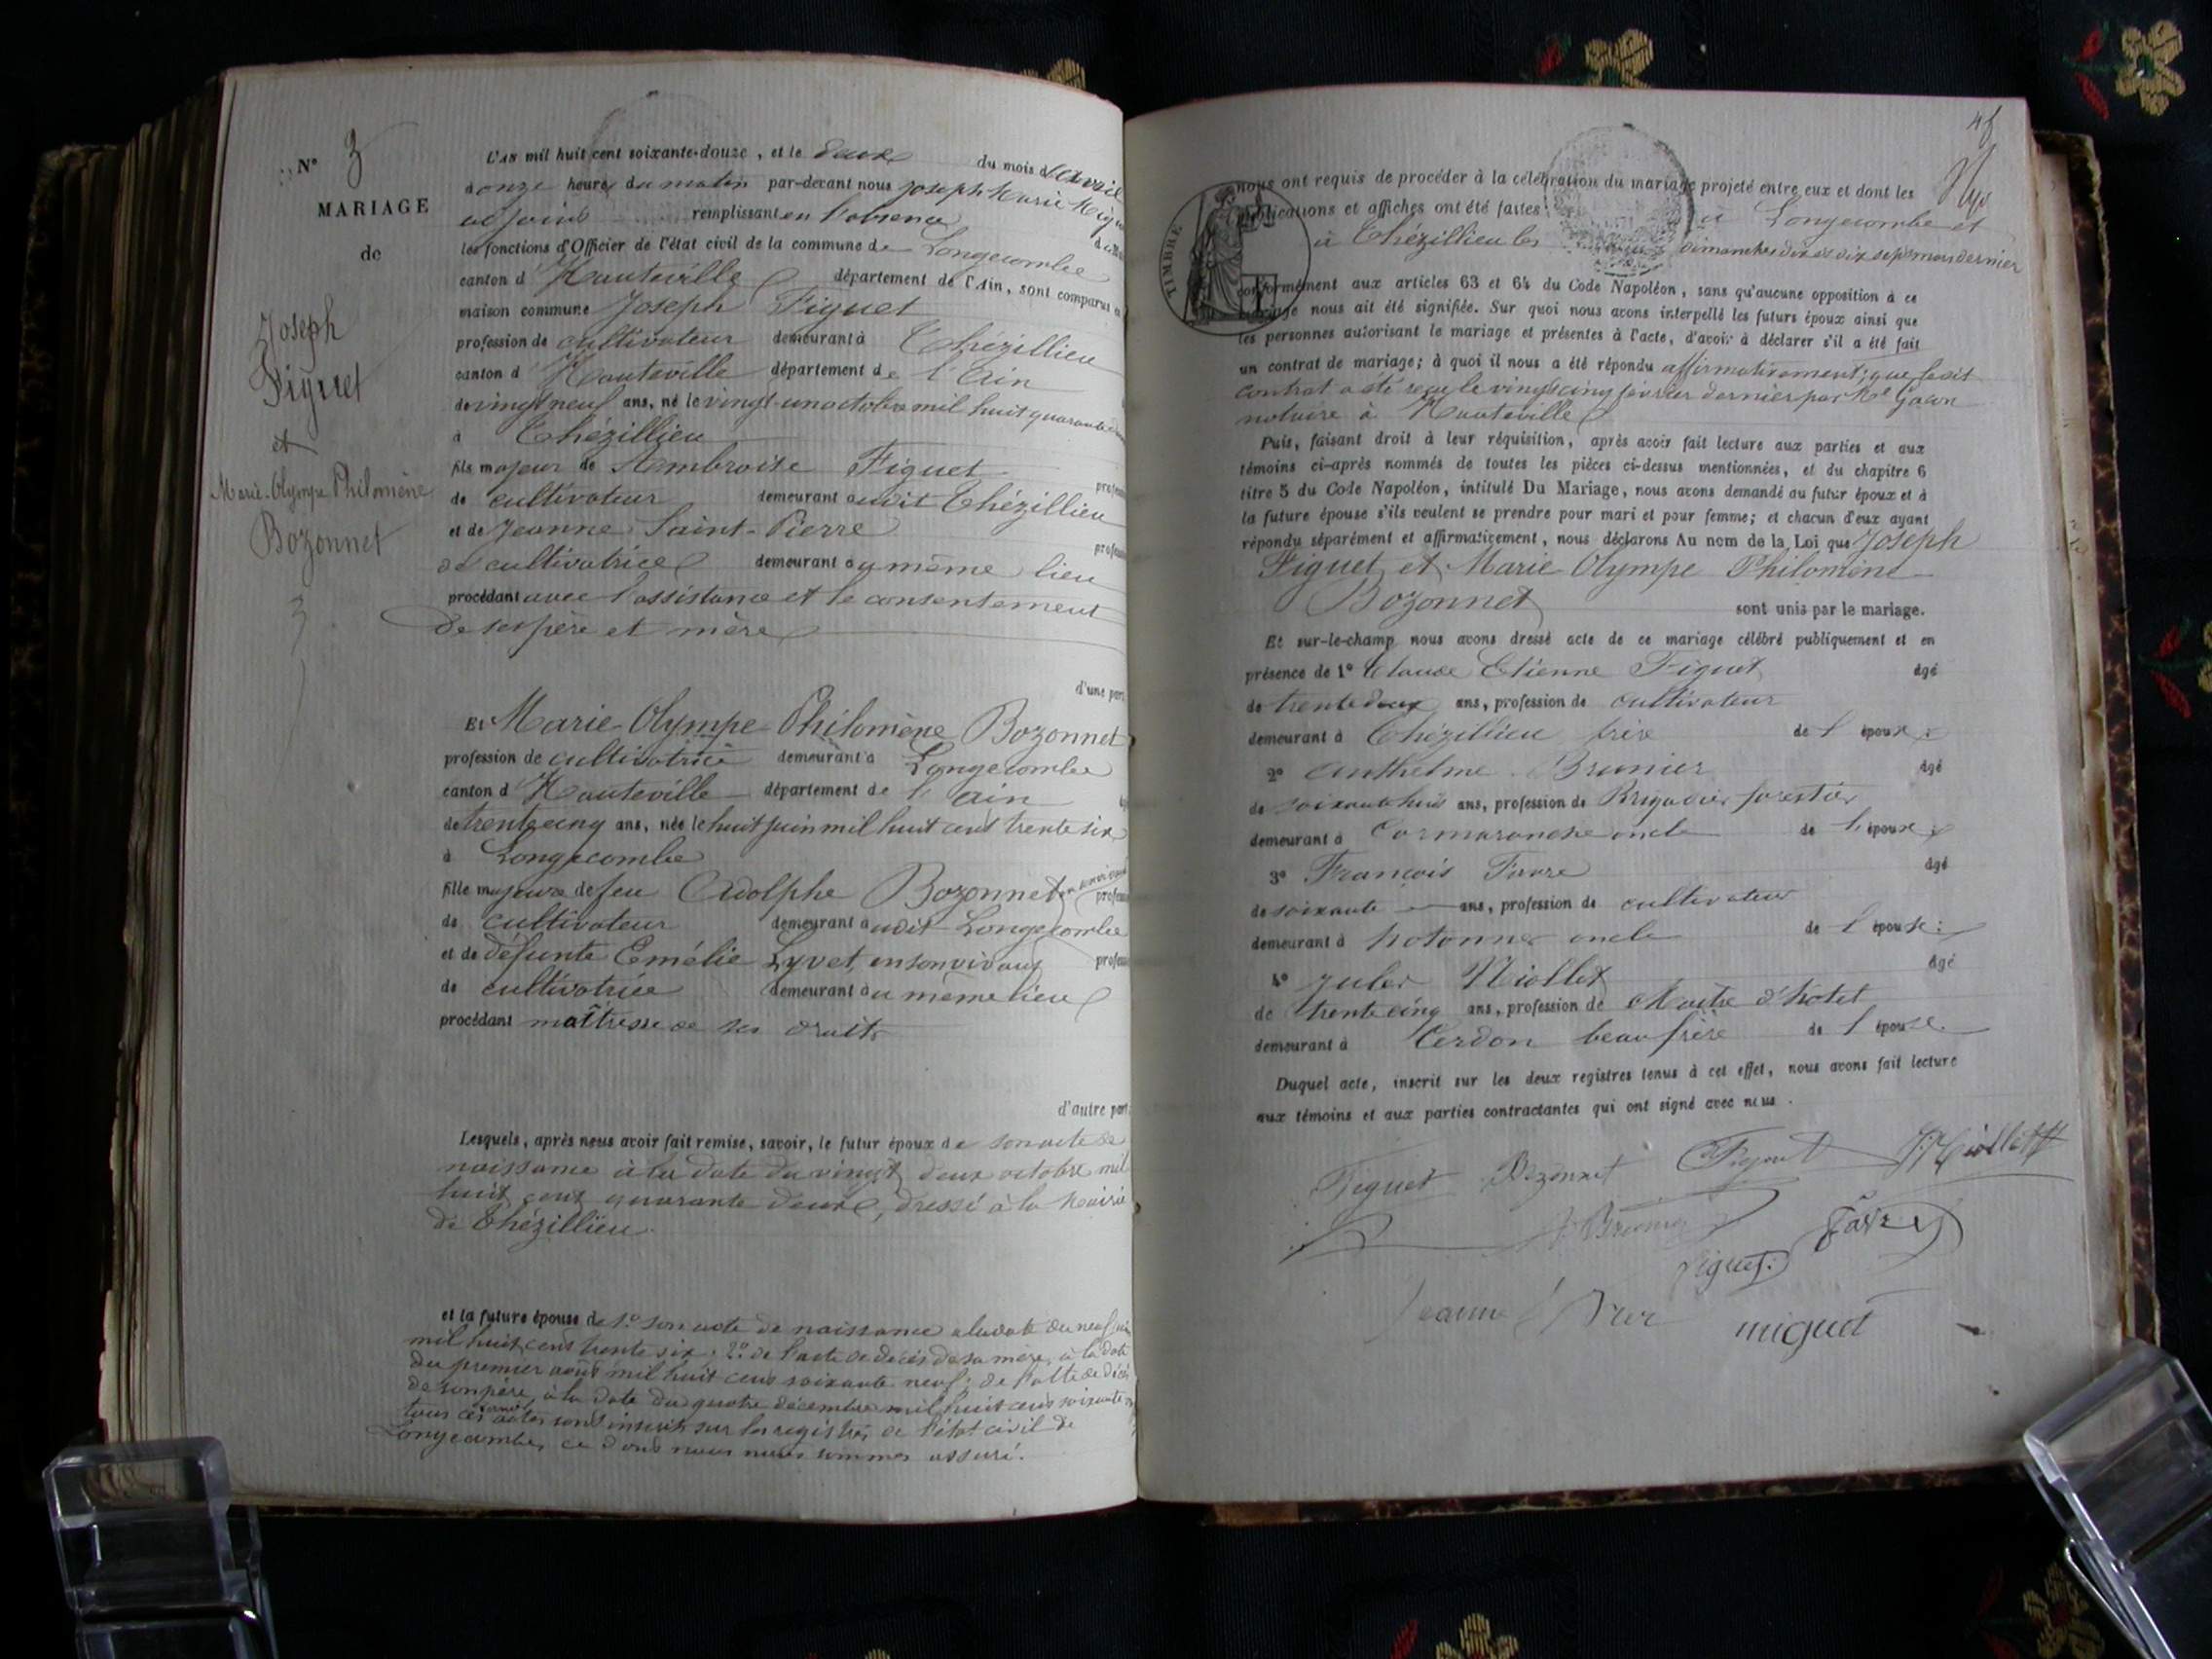 N° 3
MARIAGE
de
Joseph
Figuet
et
Marie-Olympe Philomène
Bozonnet
L'an mil huit cent soixante-douze, et le deux du mois d'avril
à onze heures du matin par-devant nous Joseph Marie
adjoint remplissant en l'absence
les fonctions d'Officier de l'état civil de la commune de Longecombe
canton d'Hauteville département de l'Ain, sont comparus en
maison commune Joseph Figuet
profession de cultivateur demeurant à Thézillieu
canton d'Hauteville département de l'Ain
de vingt neuf ans, né le vingt-un octobre mil huit quarante
à Thézillieu
fils majeur de Ambroise Figuet
de cultivateur demeurant audit Thézillieu
et de Jeanne Saint-Pierre
de cultivatrice demeurant au même lieu
procédant avec l'assistance et le consentement
de ses père et mère
d'une part
Et Marie-Olympe-Philomène Bozonnet
profession de cultivatrice demeurant à Longecombe
canton d'Hauteville département de l'Ain
de trente cinq ans, née le huit juin mil huit cent trente six
à Longecombe
fille majeure de feu Adolphe Bozonnet en son vivant
de cultivateur demeurant audit Longecombe
et de défunte Emélie Lyvet, en son vivant
de cultivatrice demeurant au même lieu
procédant maîtresse de ses droits
d'autre part
Lesquels, après nous avoir fait remise, savoir, le futur époux de son acte de
naissance à la date du vingt deux octobre mil
huit cent quarante deux, dressé à la Mairie
de Thézillieu.
et la future épouse de 1° son acte de naissance à la date du neuf juin
mil huit cent trente six; 2° de l'acte de décès de sa mère, à la date
du premier août mil huit cent soixante neuf; de l'acte de décès
de son père, à la date du quatre décembre mil huit cent soixante
tous ces actes sont inscrits sur les registres de l'état civil de
Longecombe, ce dont nous nous sommes assuré.
TIMBRE
nous ont requis de procéder à la célébration du mariage projeté entre eux et dont les
publications et affiches ont été faites: à Longecombe et
à Thézillieu les dimanches dix et dix sept mars dernier
conformément aux articles 63 et 64 du Code Napoléon, sans qu'aucune opposition à ce
mariage nous ait été signifiée. Sur quoi nous avons interpellé les futurs époux ainsi que
les personnes autorisant le mariage et présentes à l'acte, d'avoir à déclarer s'il a été fait
un contrat de mariage; à quoi il nous a été répondu affirmativement; que ledit
contrat a été reçu le vingt cinq février dernier par Me Gacon
notaire à Hauteville
Puis, faisant droit à leur réquisition, après avoir fait lecture aux parties et aux
témoins ci-après nommés de toutes les pièces ci-dessus mentionnées, et du chapitre 6
titre 5 du Code Napoléon, intitulé Du Mariage, nous avons demandé au futur époux et à
la future épouse s'ils veulent se prendre pour mari et pour femme; et chacun d'eux ayant
répondu séparément et affirmativement, nous déclarons Au nom de la Loi que Joseph
Figuet et Marie Olympe Philomène
Bozonnet sont unis par le mariage.
Et sur-le-champ nous avons dressé acte de ce mariage célébré publiquement et en
présence de 1° Claude Etienne Figuet âgé
de trente deux ans, profession de cultivateur
demeurant à Thézillieu frère de l'époux;
2° Anthelme Brunier âgé
de soixante huit ans, profession de Brigadier forestier
demeurant à Cormaranche oncle de l'époux;
3° François Favre âgé
de soixante ans, profession de cultivateur
demeurant à hotonnes oncle de l'épouse;
4° Jules Miollet âgé
de trente cinq ans, profession de Maître d'hôtel
demeurant à Cerdon beau frère de l'épouse.
Duquel acte, inscrit sur les deux registres tenus à cet effet, nous avons fait lecture
aux témoins et aux parties contractantes qui ont signé avec nous.
Figuet Bozonnet Figuet J. Miollet
Brunier Favre
Figuet
Jeanne miguet